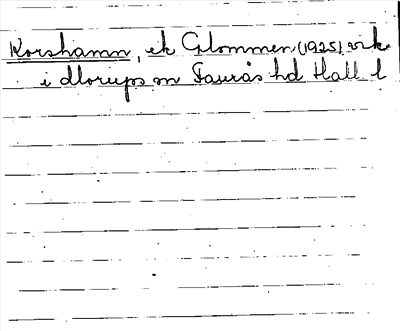 Korshamn, ek Glommen (1925), vik
i Morups sn Faurås hd Hall l